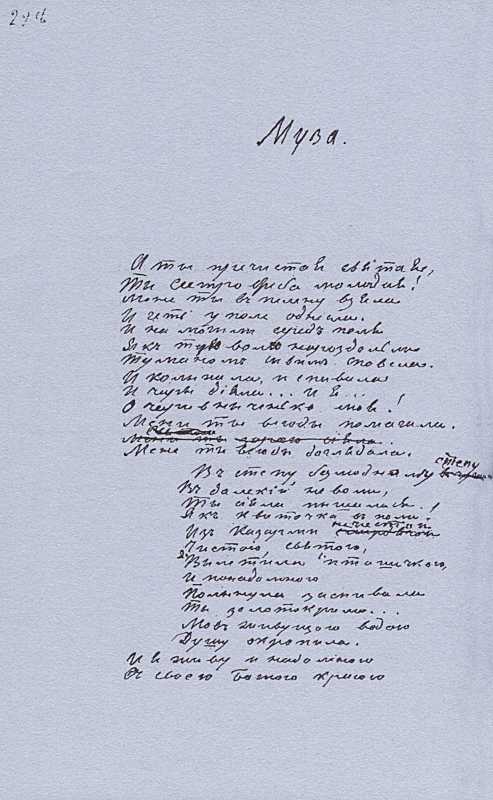 294
Муза.
А ты пречистая святая,
Ты сестро Феба молодая!
Мене ты въ пелену взяла
И геть у поле однесла.
И на могыли середъ поля
Якъ тую волю на роздольи
Туманомъ сивымъ сповела.
И колыхала, и спивала
И чары дiяла... И я...
О чаривныченько моя!
Мени ты всюды помагала.
Мене ты всюды доглядала.
Въ степу безлюдному степу
Въ далекiй неволи,
Ты сiяла пышалася
Якъ квиточка въ поли!
Изъ казармы нечистои
Чистою, святою,
Вылетила пташечкою,
И понадомною
Полынула заспивала
Ты золотокрыла...
Мовъ живущою водою
Душу окропыла.
И я живу и надомною
З своею Божою красою